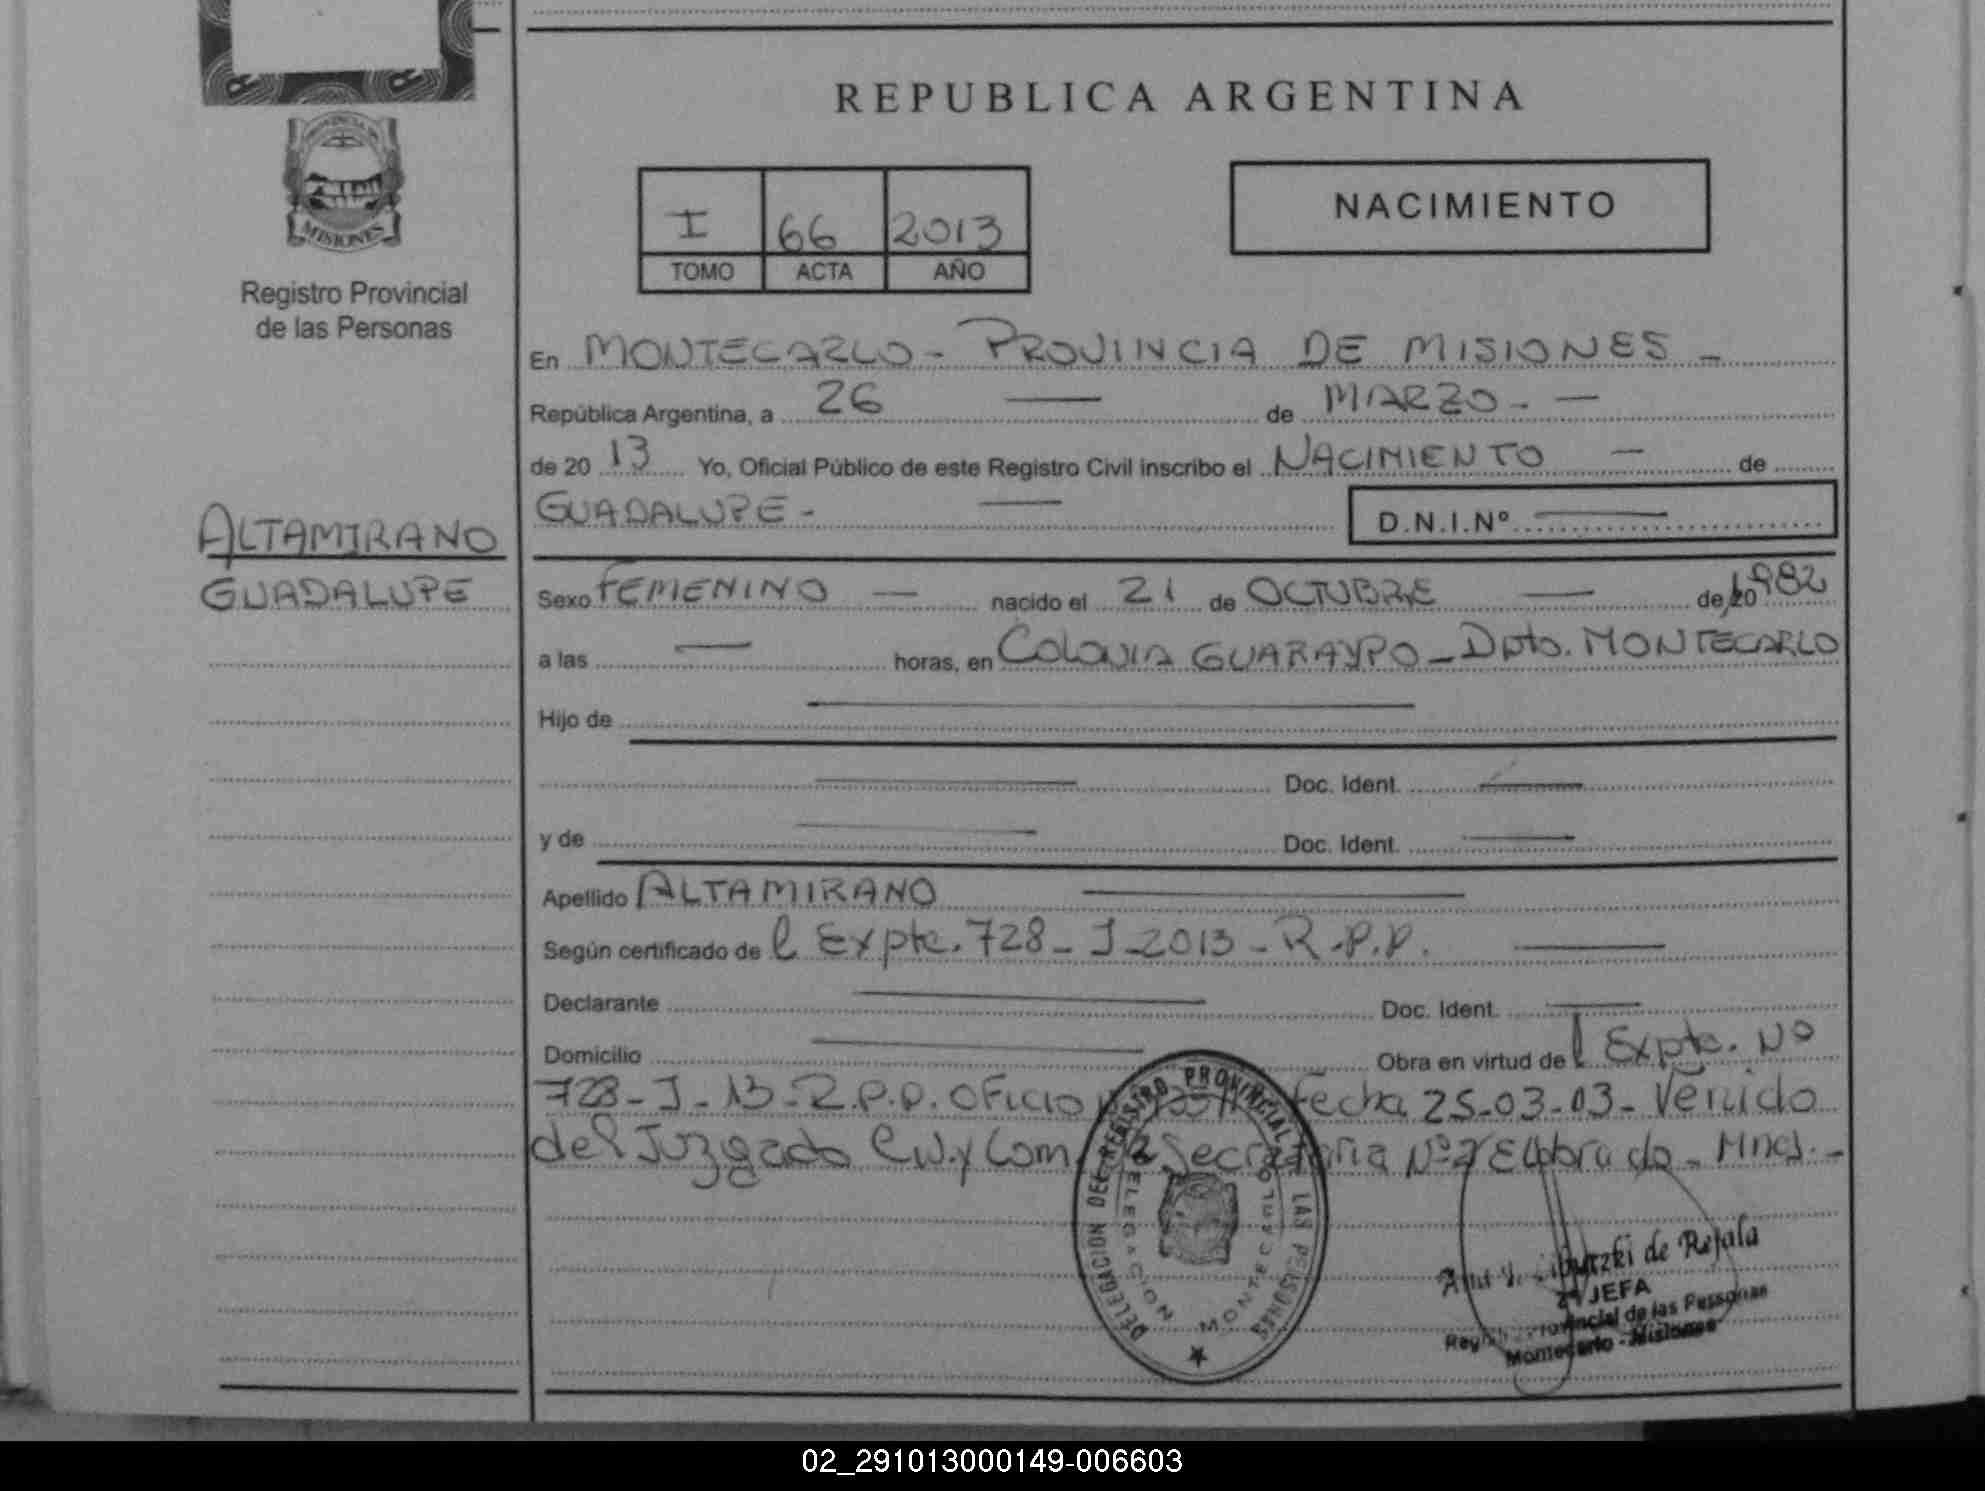 REPUBLICA ARGENTINA
PROVINCIA DE
MISIONES
Registro Provincial
de las Personas
I 66 2013
TOMO ACTA AÑO
NACIMIENTO
En MONTECARLO - PROVINCIA DE MISIONES -
República Argentina, a 26 — de MARZO. —
de 20 13 Yo, Oficial Público de este Registro Civil inscribo el NACIMIENTO — de
GUADALUPE - — D.N.I.Nº —
ALTAMIRANO
GUADALUPE
Sexo FEMENINO — nacido el 21 de OCTUBRE — de 20 1982
a las — horas, en COLONIA GUARAYPO - Dpto. MONTECARLO
Hijo de —
— Doc. Ident. —
y de — Doc. Ident. —
Apellido ALTAMIRANO —
Según certificado de l Expte. 728 - J - 2013 - R.P.P. —
Declarante — Doc. Ident. —
Domicilio — Obra en virtud de l Expte. Nº
728 - J - 13 - R.P.P. Oficio fecha 25-03-03 - Venido
del Juzgado Civ. y Com. Secretaria Nº 2 Eldorado - Mnes. -
DELEGACION DEL REGISTRO PROVINCIAL DE LAS PERSONAS
DELEGACION MONTECARLO
de Rejala
2º JEFA
Provincial de las Personas
Montecarlo - Misiones
02_291013000149-006603